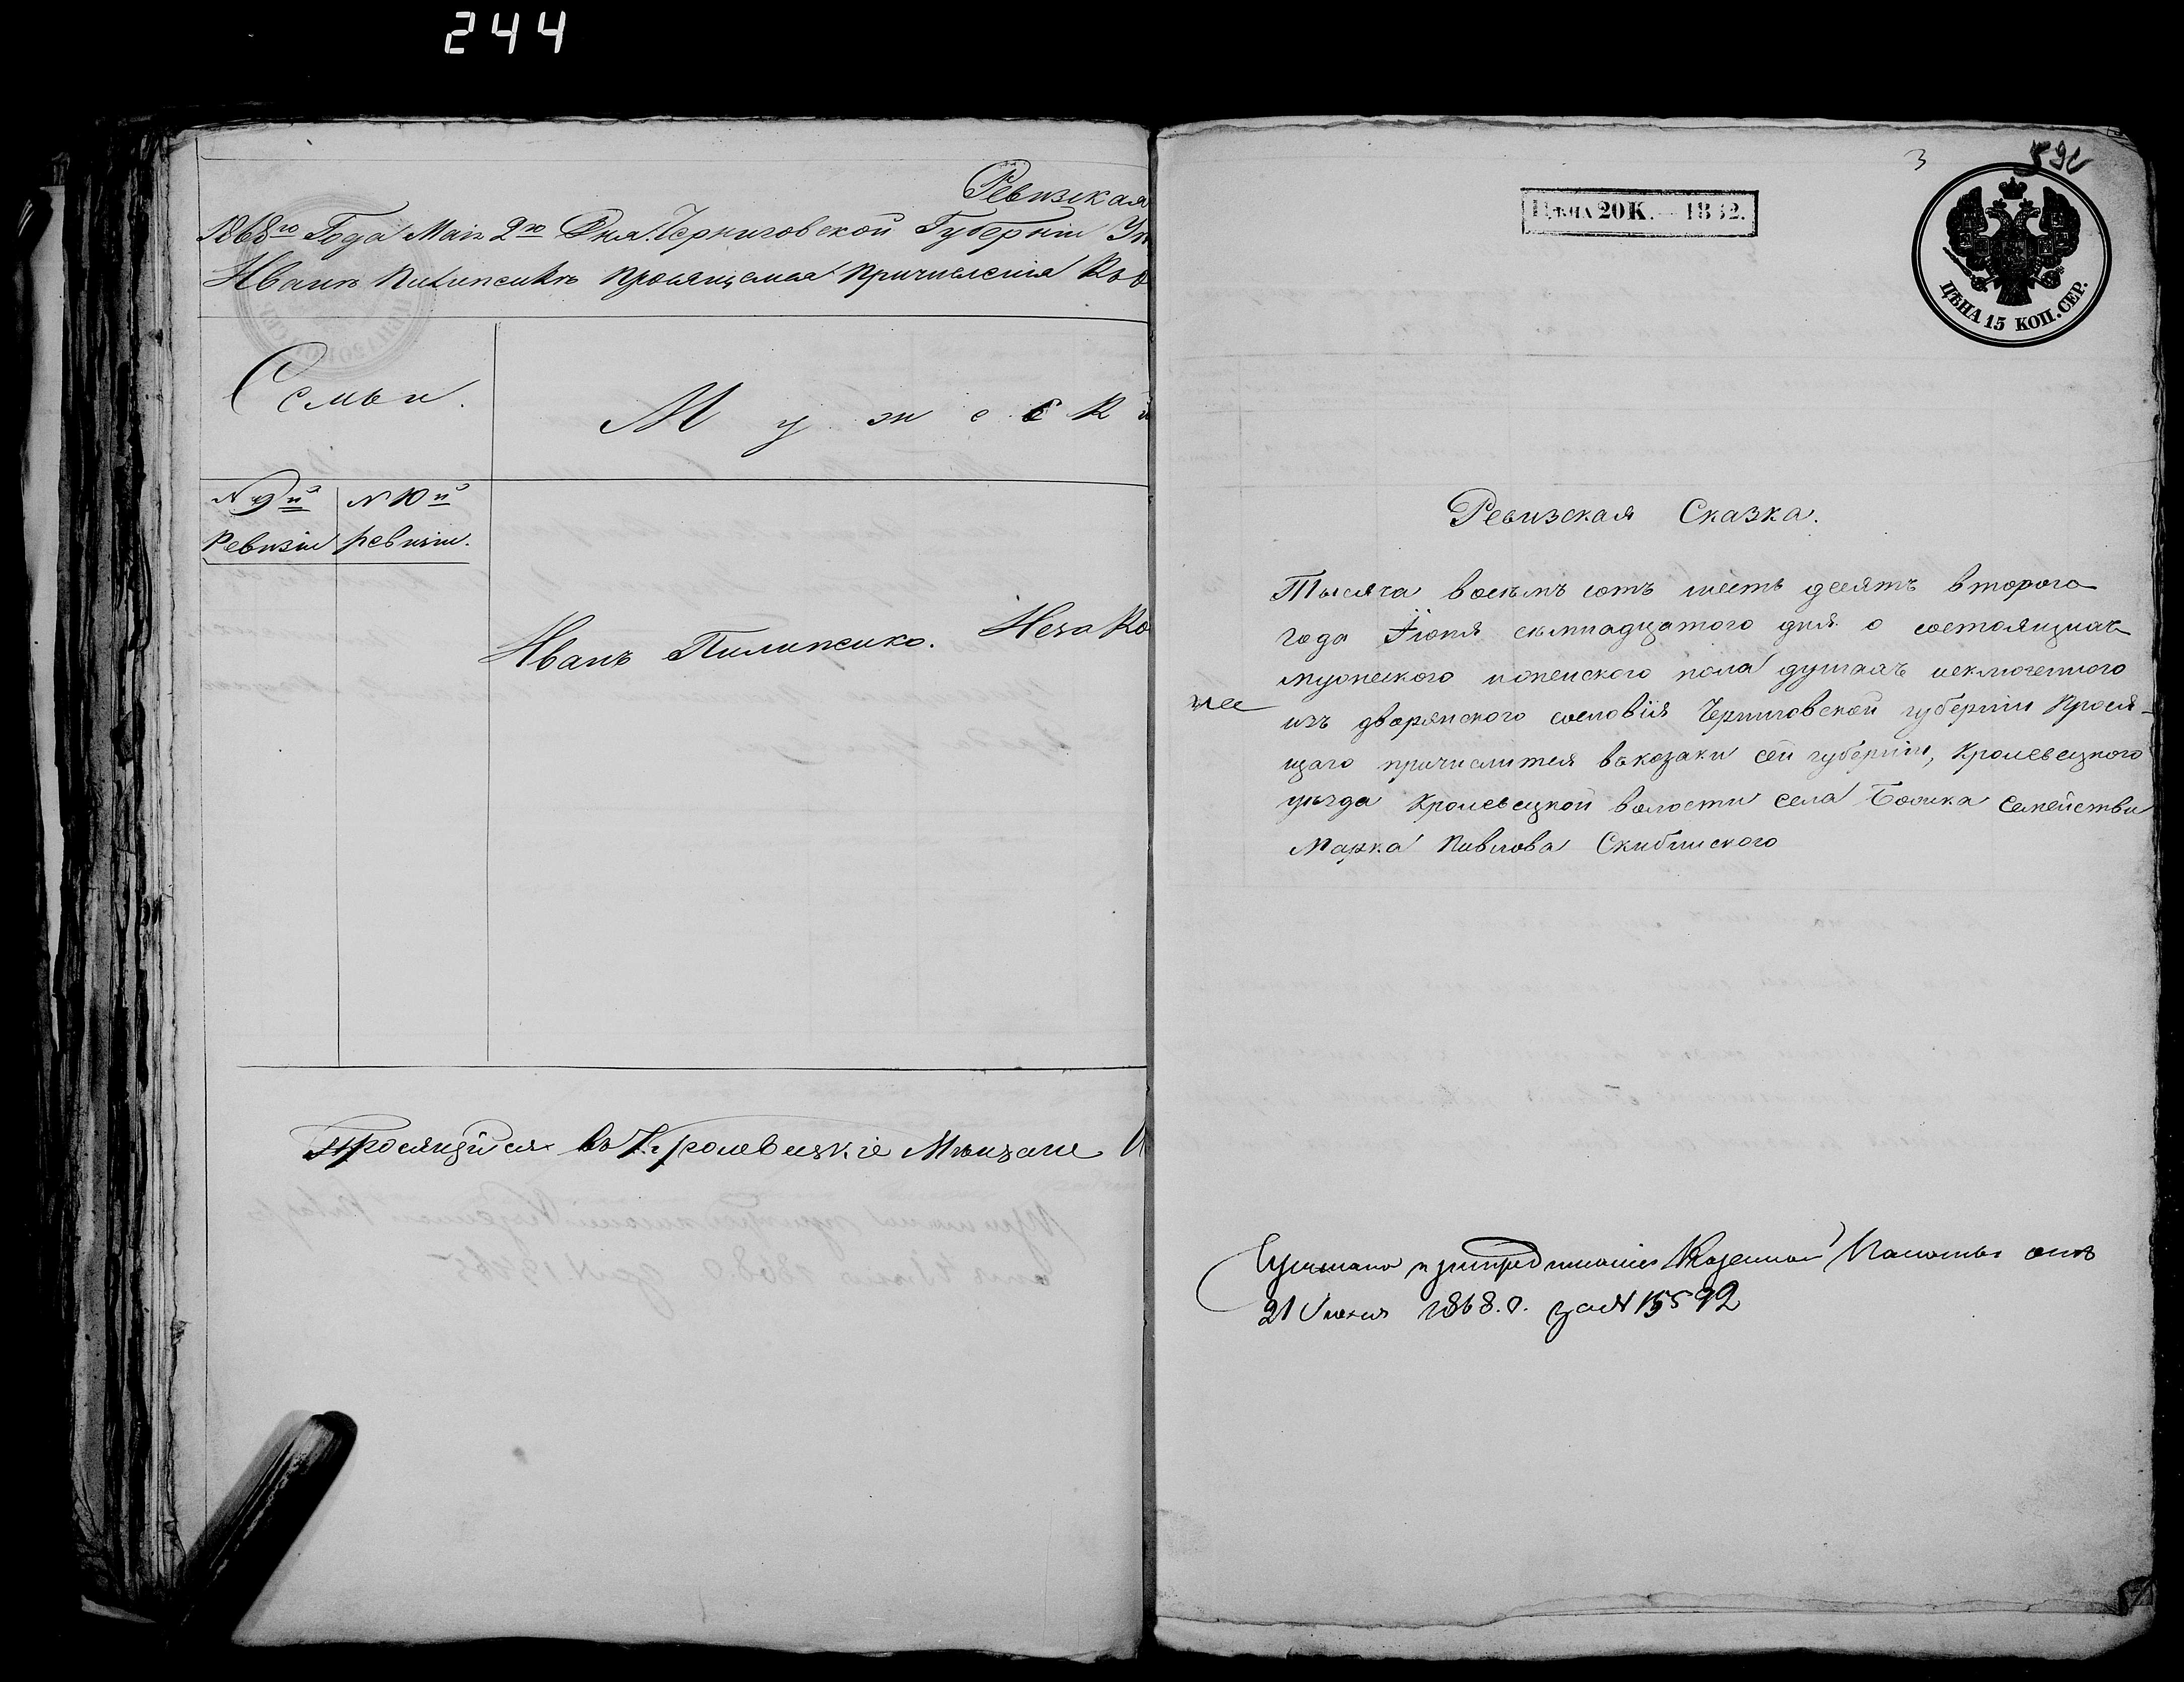 244
Ревизская
1868го Года Маія 2го Дня. Черниговской Губерніи
Иванъ Пилипенкъ просящемся Причисленія
Семьи.
Мужеск
N 9й N 10й
Ревизіи ревизіи.
Иванъ Пилипенко. Незако
Просящійся въ Кролевецкіе Мѣщане
3
ЦѢНА 20 К. — 1862.
ЦѢНА 15 КОП. СЕР.
Ревизская Сказка.
Тысяча восѣмъ сотъ шесть десятъ второго
года Іюня семнадцатого дня о состоящихъ
мужеского и женского пола душахъ исключенного
изъ дворянского сословія Черниговской губерніи Прося-
щаго причислится въ козаки сей губерніи, Кролевецкого
уѣзда Кролевецкой волости села Семейства
Марка Павлова Скибинского
предписаніе Казенной Палаты отъ
21 Іюня 1868. г. за N 15592